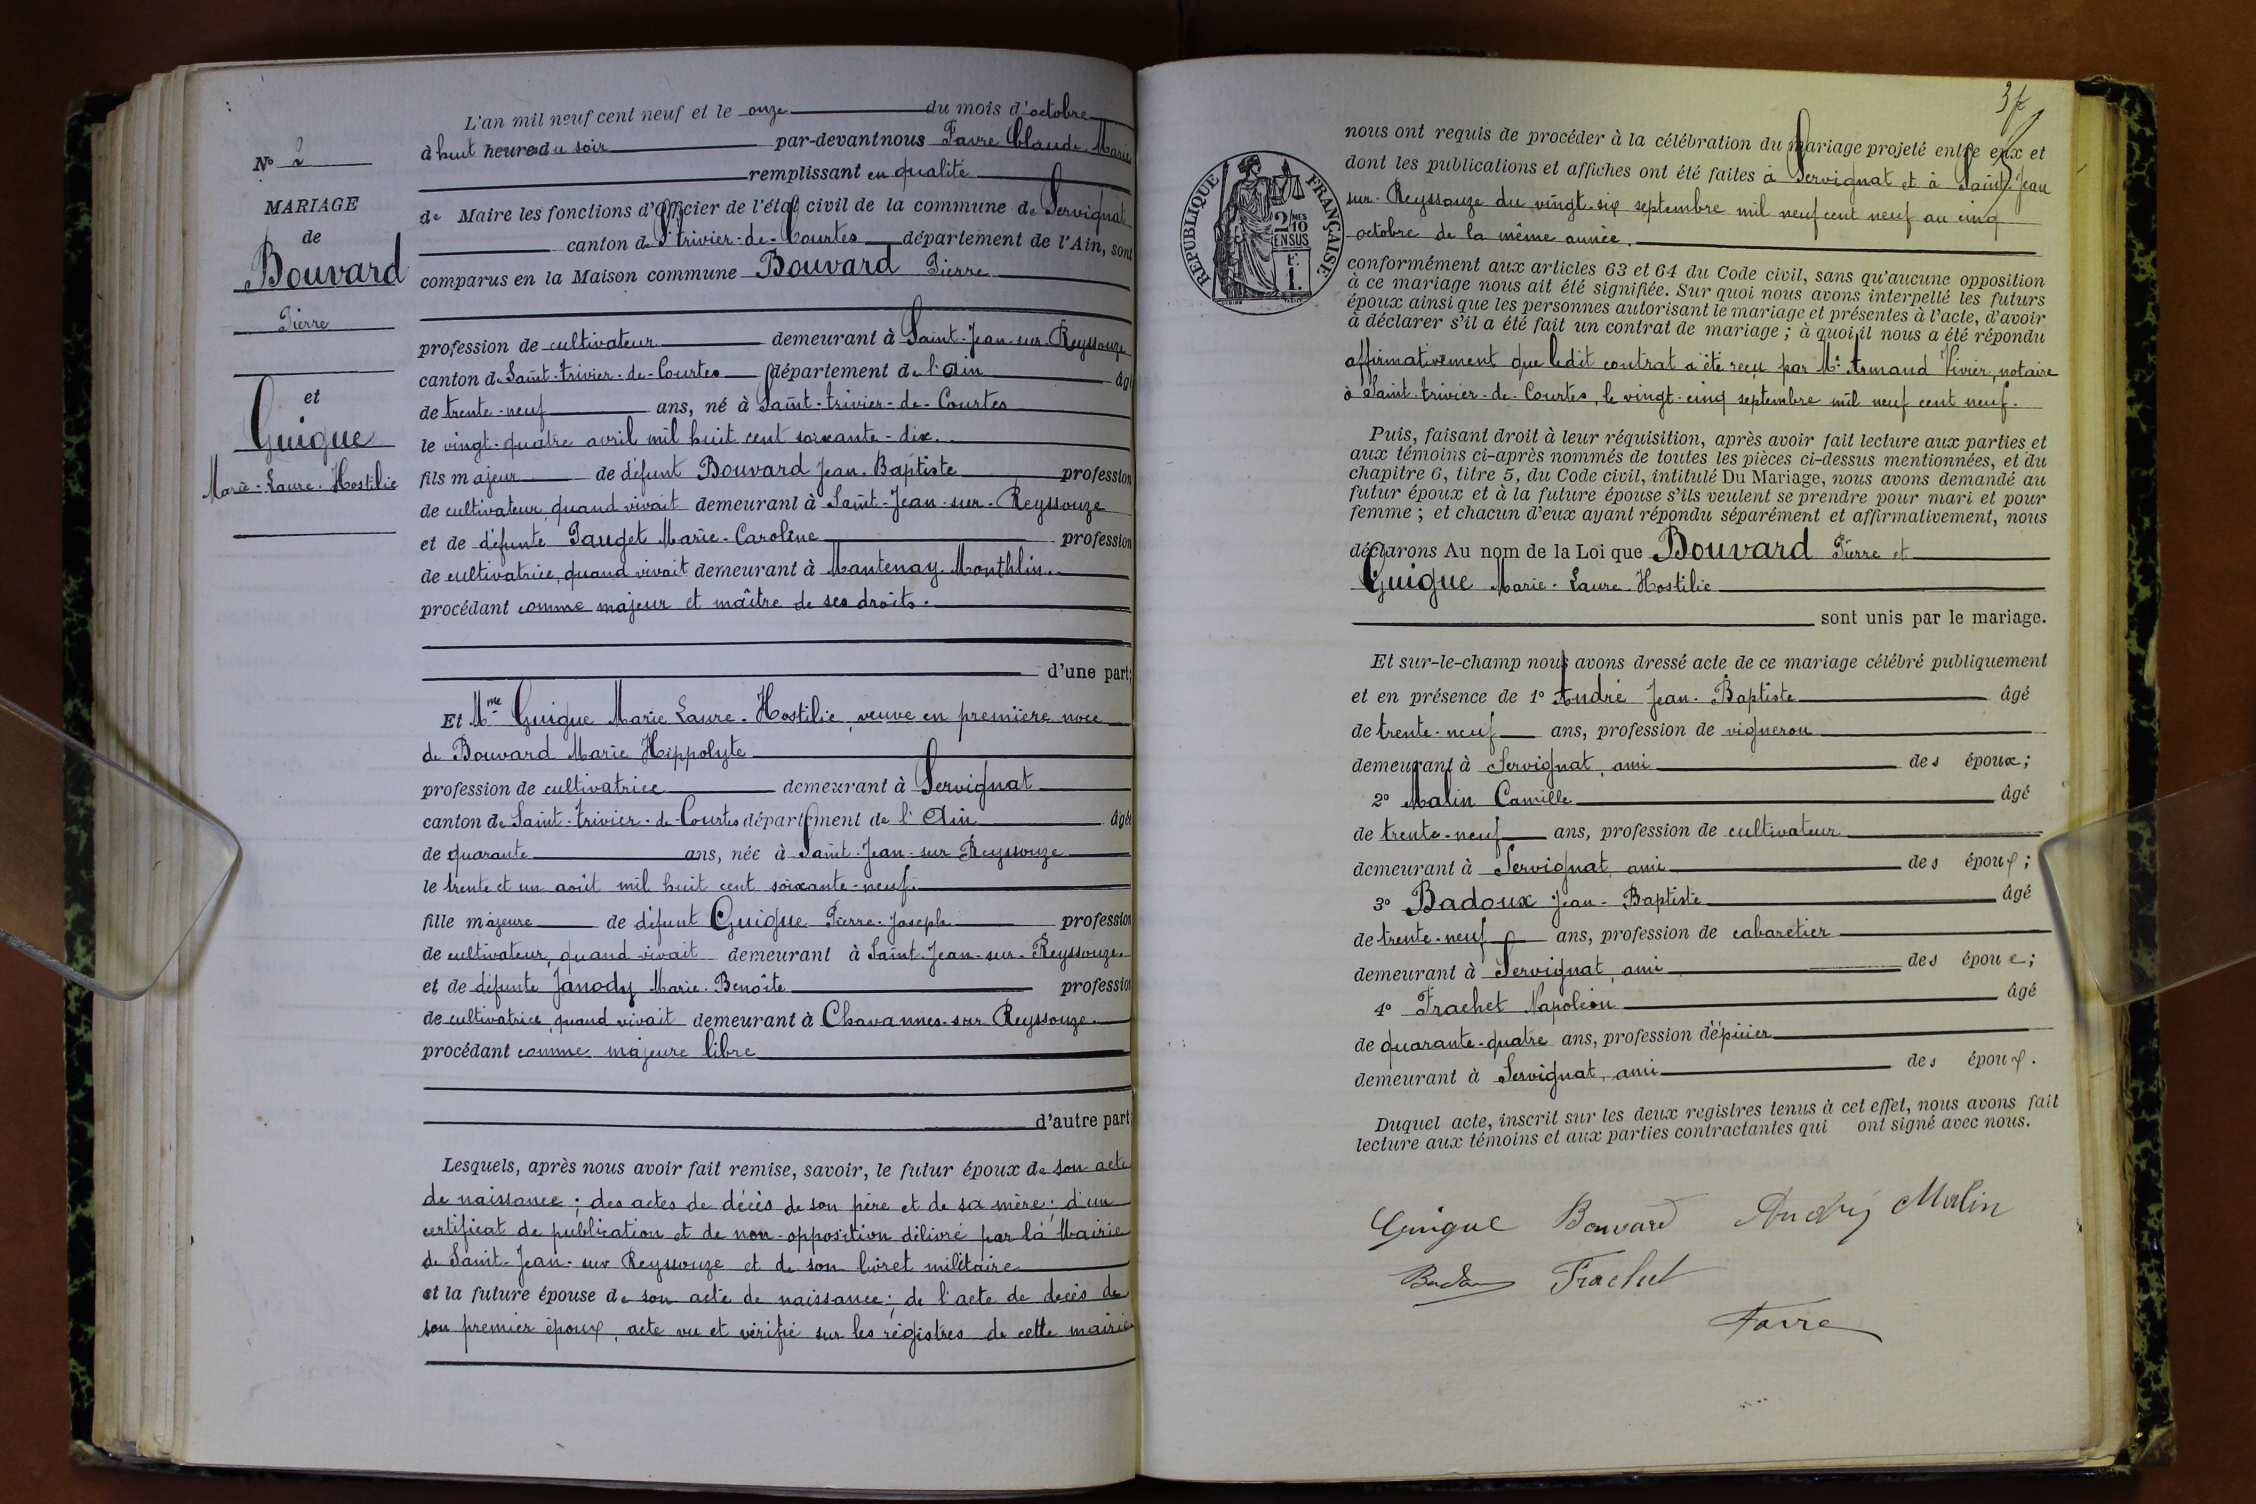 L'an mil neuf cent neuf et le onze du mois d'octobre
à huit heures du soir par-devant nous Favre Claude Marie
remplissant en qualité
de Maire les fonctions d'Officier de l'état civil de la commune de Servignat
canton de St trivier-de-Courtes département de l'Ain, sont
comparus en la Maison commune Bouvard Pierre
profession de cultivateur demeurant à Saint-Jean-sur-Reyssouze
canton de Saint-trivier-de-Courtes département de l'Ain âgé
de trente-neuf ans, né à Saint-trivier-de-Courtes
le vingt-quatre avril mil huit cent soixante-dix.
fils majeur de défunt Bouvard Jean-Baptiste profession
de cultivateur, quand vivait demeurant à Saint-Jean-sur-Reyssouze
et de défunte Pauget Marie-Caroline profession
de cultivatrice, quand vivait demeurant à Mantenay-Monthlin.
procédant comme majeur et maître de ses droits.
d'une part;
Et Mme Guigue Marie Laure-Hostilie, veuve en première noce
de Bouvard Marie Hippolyte
profession de cultivatrice demeurant à Servignat
canton de Saint-trivier-de-Courtes département de l'Ain âgée
de quarante ans, née à Saint-Jean-sur Reyssouze
le trente et un août mil huit cent soixante-neuf.
fille majeure de défunt Guigue Pierre-Joseph profession
de cultivateur, quand vivait demeurant à Saint-Jean-sur-Reyssouze.
et de défunte Janody Marie-Benoîte profession
de cultivatrice, quand vivait demeurant à Chavannes-sur Reyssouze.
procédant comme majeure libre
d'autre part;
Lesquels, après nous avoir fait remise, savoir, le futur époux de son acte
de naissance; des actes de décès de son père et de sa mère; d'un
certificat de publication et de non-opposition délivré par la Mairie
de Saint-Jean-sur Reyssouze et de son livret militaire
et la future épouse de son acte de naissance; de l'acte de decès de
son premier époux, acte vu et vérifié sur les régistres de cette mairie
No 2
MARIAGE
de
Bouvard
Pierre
et
Guigue
Marie-Laure-Hostilie
nous ont requis de procéder à la célébration du mariage projeté entre eux et
dont les publications et affiches ont été faites à Servignat et à Saint-Jean
sur-Reyssouze du vingt-six septembre mil neuf cent neuf au cinq
octobre de la même année.
conformément aux articles 63 et 64 du Code civil, sans qu'aucune opposition
à ce mariage nous ait été signifiée. Sur quoi nous avons interpellé les futurs
époux ainsi que les personnes autorisant le mariage et présentes à l'acte, d'avoir
à déclarer s'il a été fait un contrat de mariage; à quoi il nous a été répondu
affirmativement que ledit contrat a été reçu par Me Armand Vivier, notaire
à Saint-trivier-de-Courtes, le vingt-cinq septembre mil neuf cent neuf.
Puis, faisant droit à leur réquisition, après avoir fait lecture aux parties et
aux témoins ci-après nommés de toutes les pièces ci-dessus mentionnées, et du
chapitre 6, titre 5, du Code civil, intitulé Du Mariage, nous avons demandé au
futur époux et à la future épouse s'ils veulent se prendre pour mari et pour
femme; et chacun d'eux ayant répondu séparément et affirmativement, nous
déclarons Au nom de la Loi que Bouvard Pierre et
Guigue Marie-Laure-Hostilie
sont unis par le mariage.
Et sur-le-champ nous avons dressé acte de ce mariage célébré publiquement
et en présence de 1° André Jean-Baptiste âgé
de trente-neuf ans, profession de vigneron
demeurant à Servignat, ami des époux;
2° Malin Camille âgé
de trente-neuf ans, profession de cultivateur
demeurant à Servignat, ami des époux;
3° Badoux Jean-Baptiste âgé
de trente-neuf ans, profession de cabaretier
demeurant à Servignat, ami des époux;
4° Frachet Napoléon âgé
de quarante-quatre ans, profession d'épicier
demeurant à Servignat, ami des époux.
Duquel acte, inscrit sur les deux registres tenus à cet effet, nous avons fait
lecture aux témoins et aux parties contractantes qui ont signé avec nous.
Guigue Bouvard André Malin
Frachet
Favre
RÉPUBLIQUE FRANÇAISE
2/10MES
EN SUS
F.
1.